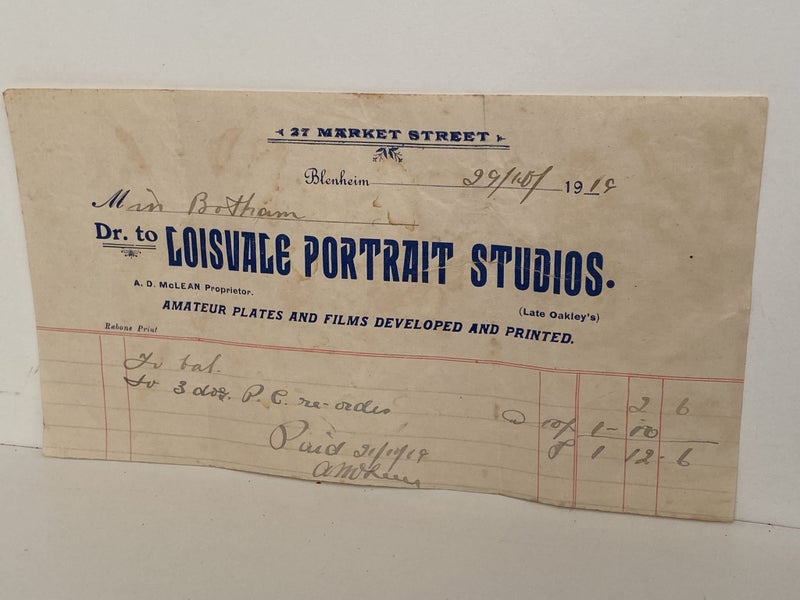 27 MARKET STREET
Blenheim 29/10/ 1919
Miss Botham
Dr. to LOISVALE PORTRAIT STUDIOS.
A. D. McLEAN Proprietor.
(Late Oakley's)
AMATEUR PLATES AND FILMS DEVELOPED AND PRINTED.
Rabone Print
To bal. 2 6
To 3 doz. P. C. re-order @ 10/ 1 - 10
£ 1 12 - 6
Paid 21/10/19